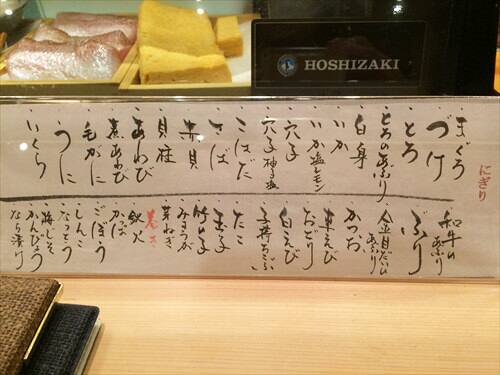 HOSHIZAKI
にぎり
まぐろ
づけ
とろ
とろのあぶり
白身
いか
いか塩レモン
穴子
穴子柚子塩
こはだ
さば
赤貝
貝柱
あわび
蒸あわび
毛がに
うに
いくら
和牛のあぶり
ぶり
金目だいのあぶり
かつお
車えび
おどり
白えび
子持ちこぶ
たこ
玉子
竹の子
みょうが
芽ねぎ
巻き
鉄火
かっぱ
ごぼう
しんこ
なっとう
梅しそ
かんぴょう
なら漬け